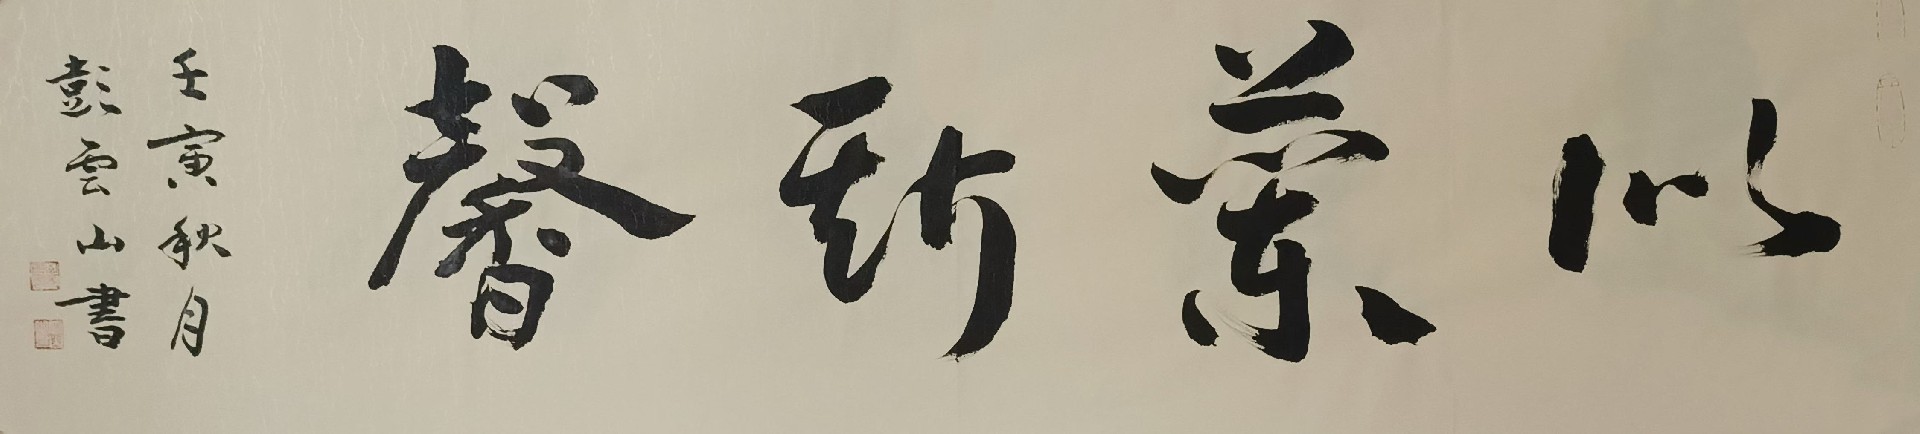 似蘭斯馨
壬寅秋月
彭雲山書